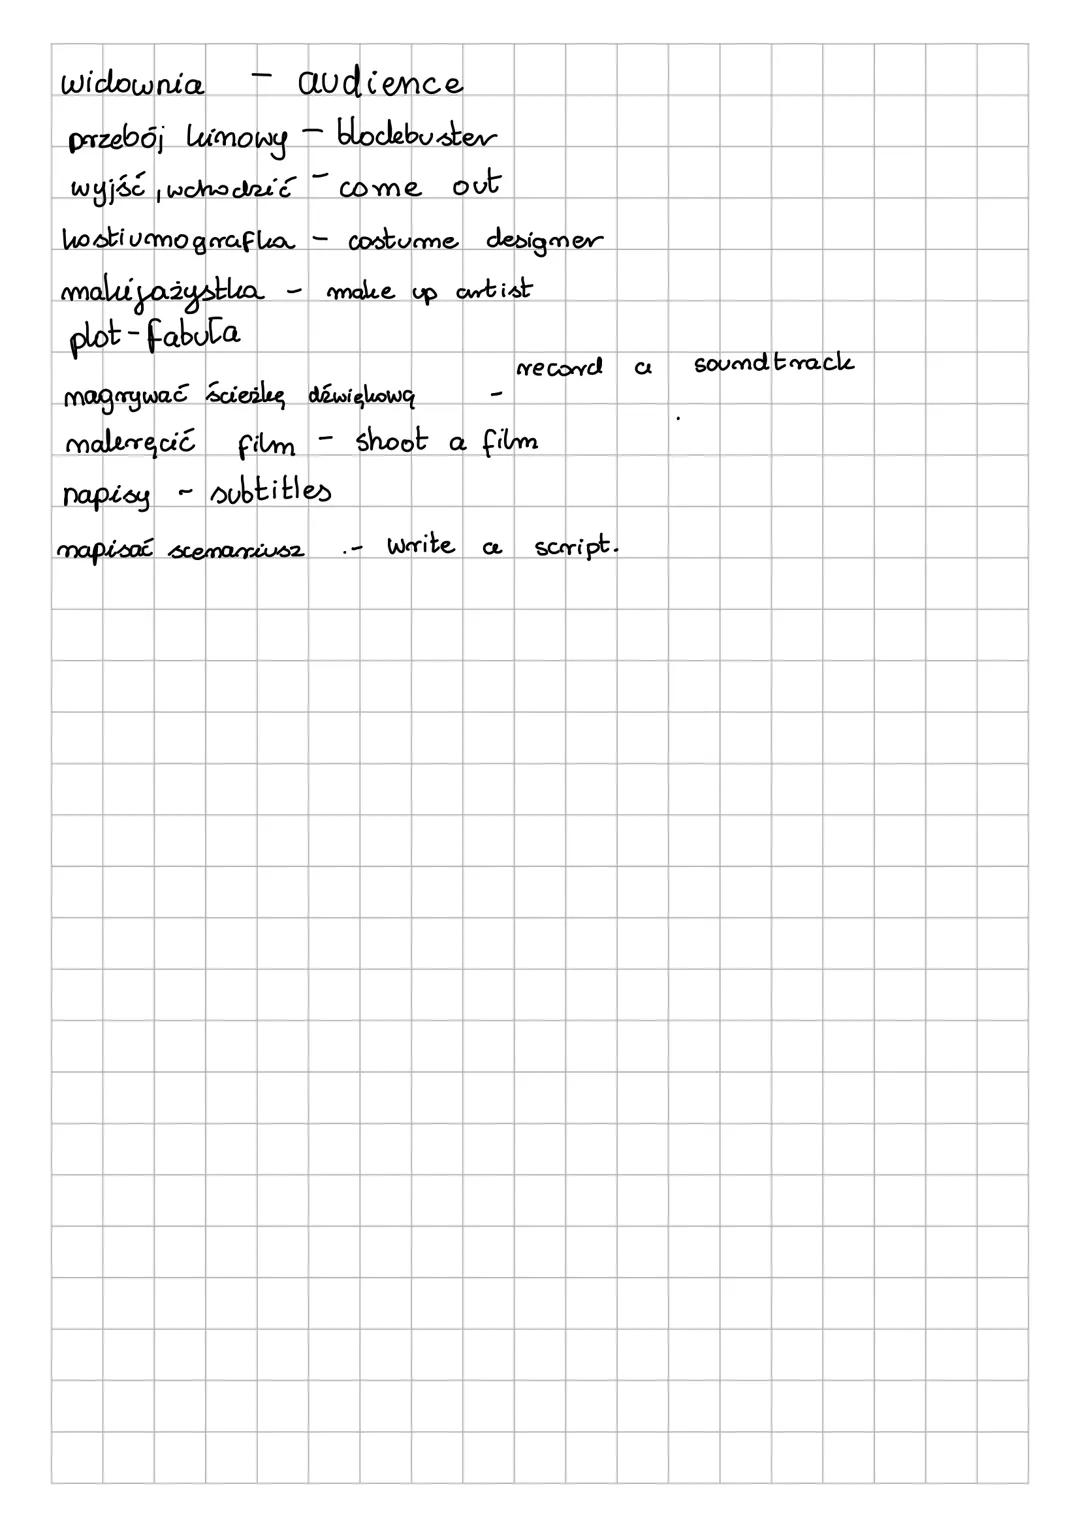 widownia - audience
przebój kinowy - blockbuster
wyjść, wchodzić - come out
kostiumografka - costume designer
makijażystka - make up artist
plot - fabuła
nagrywać ścieżkę dźwiękową - record a soundtrack
nakręcić film - shoot a film
napisy - subtitles
napisać scenariusz .- write a script.